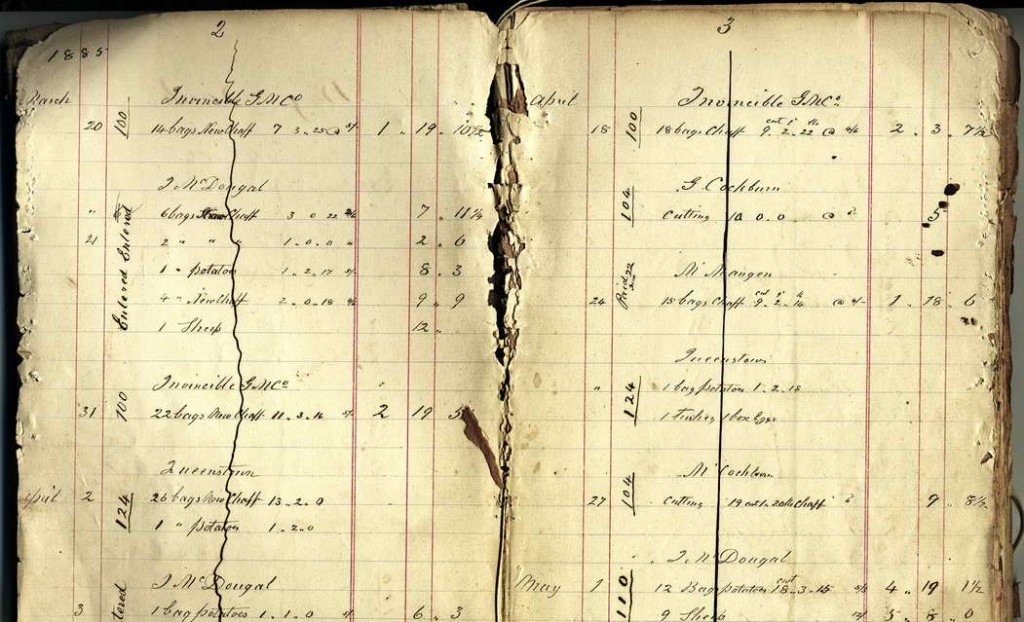 2
1885
March Invincible G.M.Co
20 100 14 bags New Chaff 7 3 25 @ 5/ 1 19 10½
J McDougal
" Entered 6 bags Chaff 3 0 22 2/6 7 11½
21 Entered 2 " " " 1 . 0 . 0 " 2 . 6
1 " potatoes 1 . 2 . 17 5/ 8 . 3
4 " New Chaff 2 . 0 . 18 9 . 9
1 Sheep 12 .
Invincible G.M.Co
31 100 22 bags New Chaff 11 . 3 . 16 5/ 2 19 5
Queenstown
April 2 124 26 bags New Chaff 13 . 2 . 0
1 " potatoes 1 . 2 . 0
J McDougal
3 1 bag potatoes 1 . 1 . 0 5/ 6 . 3
3
April Invincible G.M.Co
18 100 18 bags Chaff 9 . 2 . 22 @ 4/6 2 . 3 . 7½
G Cockburn
104 Cutting 10 0 . 0 @ 5
Mangen
24 Paid 22 15 bags Chaff 9 . 2 . 14 @ 4/- 1 . 18 . 6
Queenstown
" 124 1 bag potatoes 1 . 2 . 18
1 box Eggs
Cockburn
27 104 Cutting Chaff 9 . 8½
J McDougal
May 1 110 12 Bag potatoes 18 . 3 . 15 4 . 19 1½
9 Sheep 5 . 0